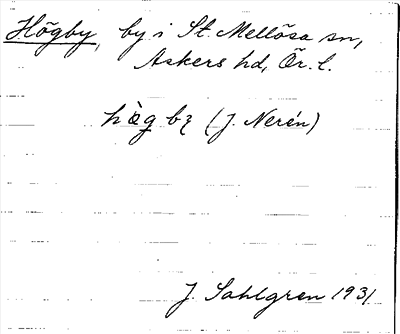 Högby, by i St. Mellösa sn,
Askers hd, Ör. l.
hög by (J. Nerén)
J. Sahlgren 1931